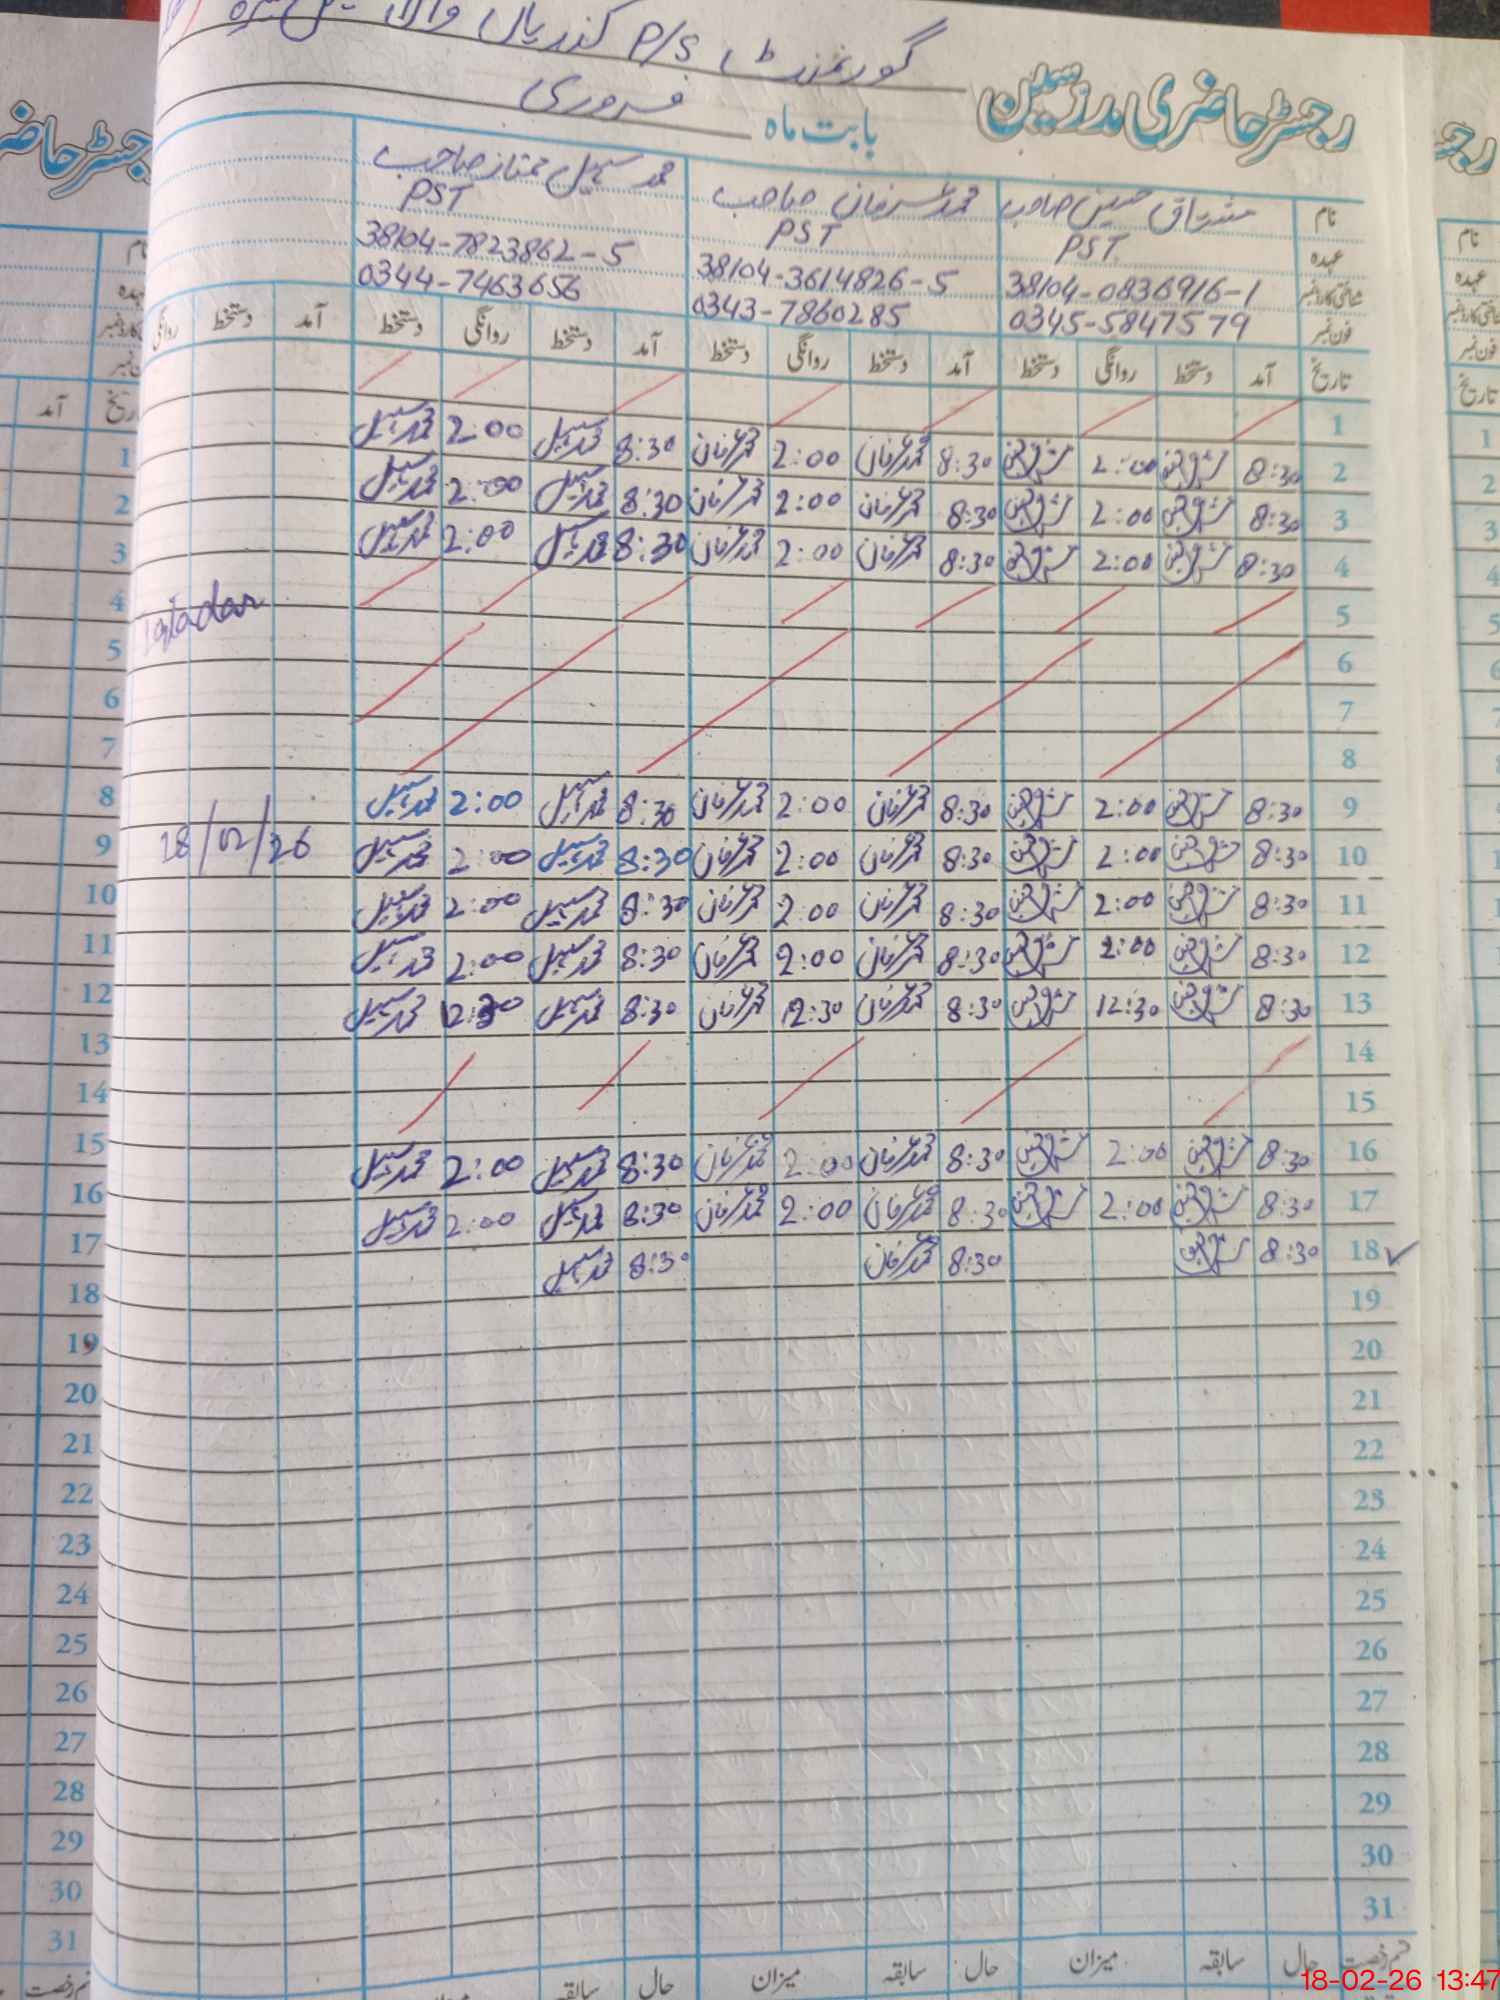 گورنمنٹ P/S کندریال والا
رجسٹر حاضری مدرسین
بابت ماہ فروری
نام مشتاق حسین صاحب محمد عرفان صاحب محمد سہیل ممتاز صاحب
عہدہ PST PST PST
شناختی کارڈ نمبر 38104-0836916-1 38104-3614826-5 38104-7823862-5
فون نمبر 0345-5847579 0343-7860285 0344-7463656
تاریخ آمد دستخط روانگی دستخط آمد دستخط روانگی دستخط آمد دستخط روانگی دستخط آمد دستخط روانگی
1
2 8:30 مشتاق حسین 2:00 مشتاق حسین 8:30 محمد عرفان 2:00 محمد عرفان 8:30 محمد سہیل 2:00 محمد سہیل
3 8:30 مشتاق حسین 2:00 مشتاق حسین 8:30 محمد عرفان 2:00 محمد عرفان 8:30 محمد سہیل 2:00 محمد سہیل
4 8:30 مشتاق حسین 2:00 مشتاق حسین 8:30 محمد عرفان 2:00 محمد عرفان 8:30 محمد سہیل 2:00 محمد سہیل
5
6
7
8
9 8:30 مشتاق حسین 2:00 مشتاق حسین 8:30 محمد عرفان 2:00 محمد عرفان 8:30 محمد سہیل 2:00 محمد سہیل
10 8:30 مشتاق حسین 2:00 مشتاق حسین 8:30 محمد عرفان 2:00 محمد عرفان 8:30 محمد سہیل 2:00 محمد سہیل 18/02/26
11 8:30 مشتاق حسین 2:00 مشتاق حسین 8:30 محمد عرفان 2:00 محمد عرفان 8:30 محمد سہیل 2:00 محمد سہیل
12 8:30 مشتاق حسین 2:00 مشتاق حسین 8:30 محمد عرفان 2:00 محمد عرفان 8:30 محمد سہیل 2:00 محمد سہیل
13 8:30 مشتاق حسین 12:30 مشتاق حسین 8:30 محمد عرفان 12:30 محمد عرفان 8:30 محمد سہیل 12:30 محمد سہیل
14
15
16 8:30 مشتاق حسین 2:00 مشتاق حسین 8:30 محمد عرفان 2:00 محمد عرفان 8:30 محمد سہیل 2:00 محمد سہیل
17 8:30 مشتاق حسین 2:00 مشتاق حسین 8:30 محمد عرفان 2:00 محمد عرفان 8:30 محمد سہیل 2:00 محمد سہیل
18 ✓ 8:30 مشتاق حسین 8:30 محمد عرفان 8:30 محمد سہیل
19
20
21
22
23
24
25
26
27
28
29
30
31
قسم رخصت حال سابقہ میزان حال سابقہ میزان حال سابقہ
18-02-26 13:47